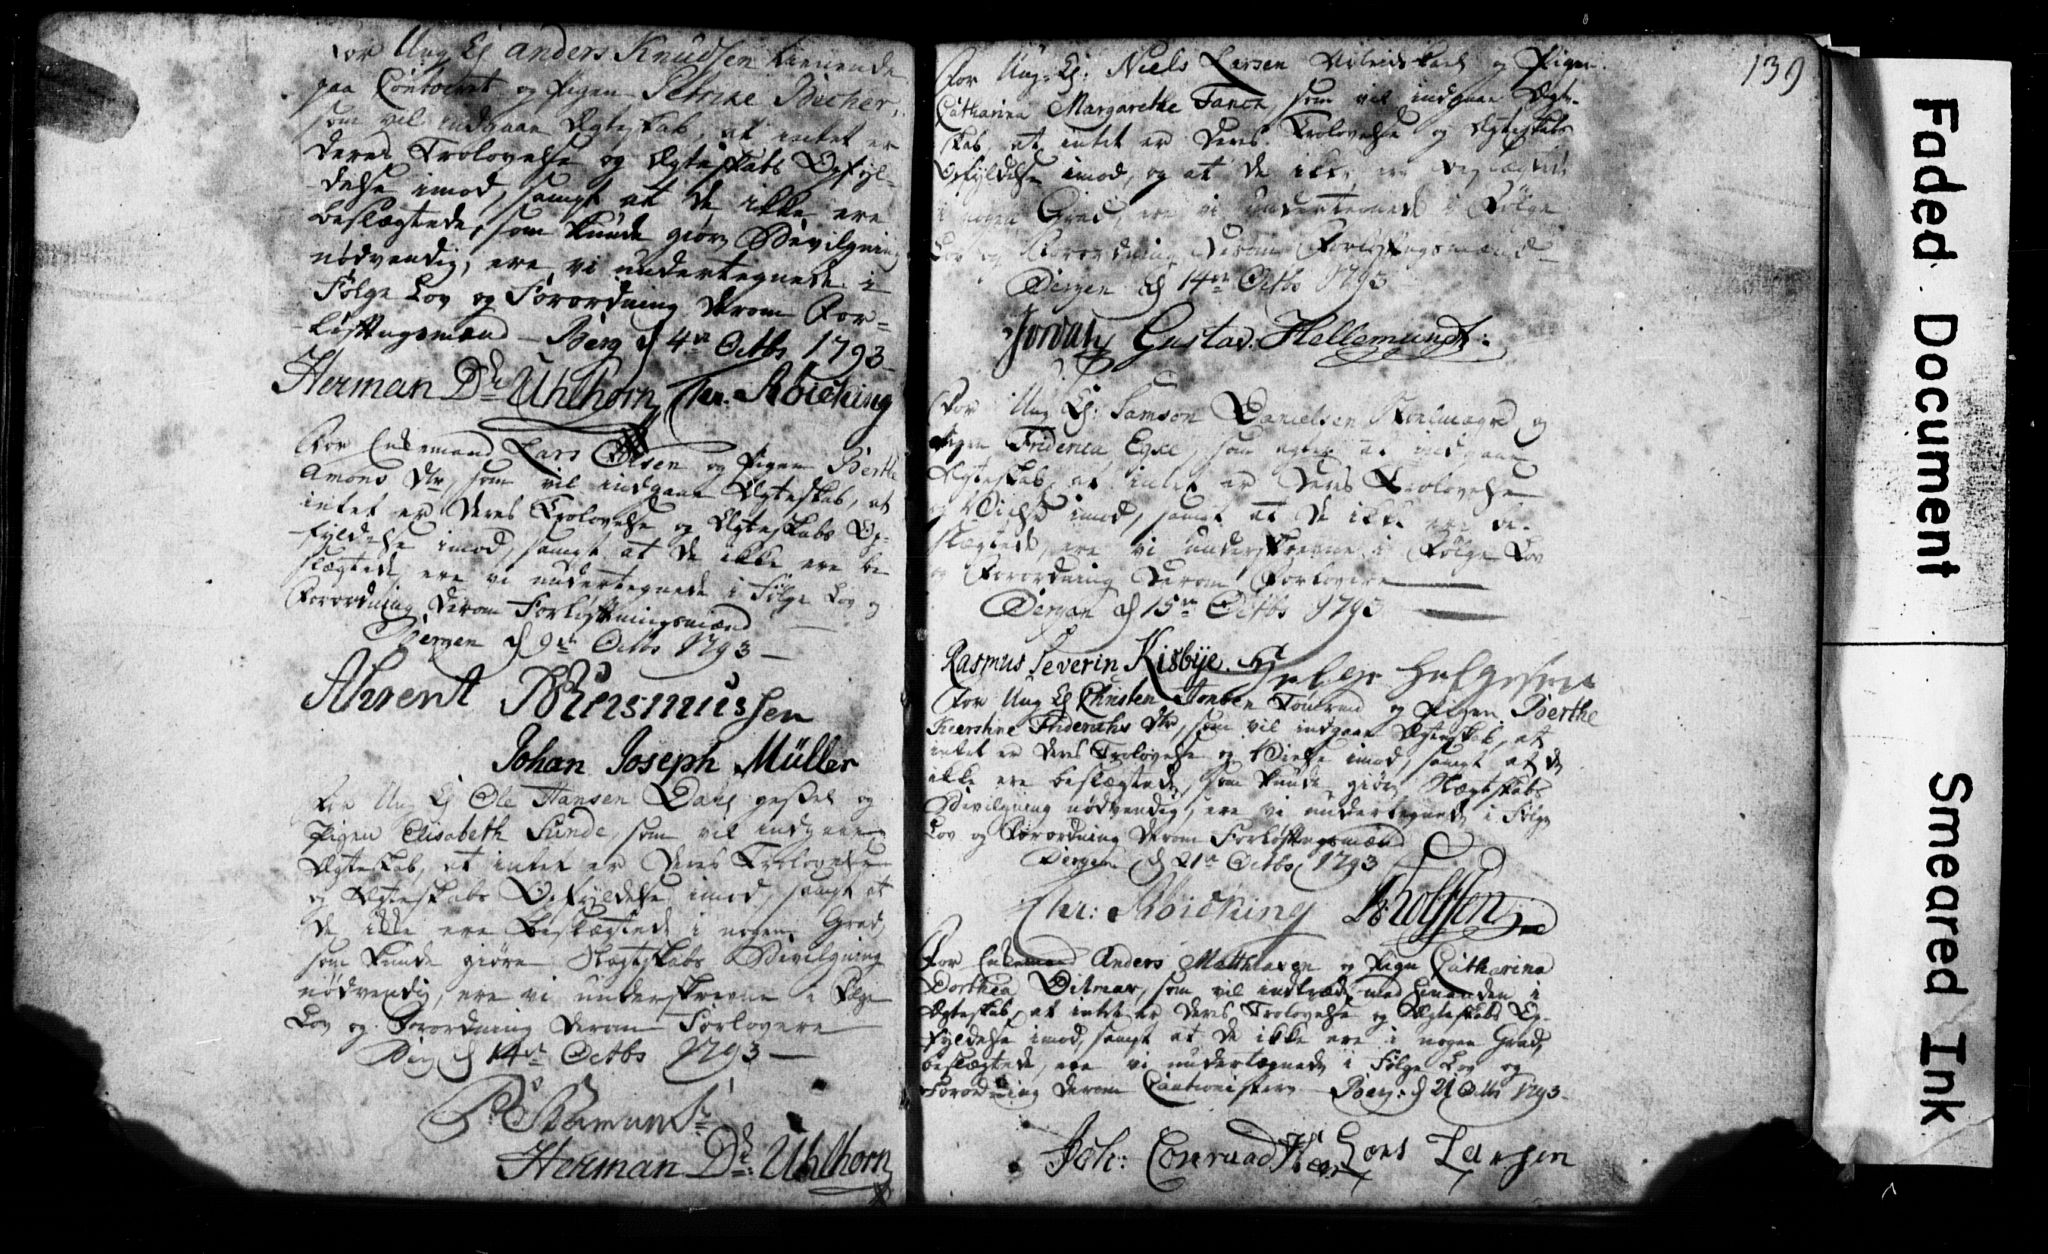 For Ung Ej Anders Knudsen tienende
paa Contoiret og Pigen Petrike Bücher,
som vil indgaae Ægteskab, at intet er
deres Trolovelse og Ægteskabs Opfyl-
delse imod, samt at de ikke ere
beslægtede, som kunde giøre Bevilgning
nødvendig, ere vi undertegnede i
Følge Lov og Forordning derom For-
lystningsmænd Berg d 4de Octbr 1793
Herman Dk Uhlhorn
Chr: Roicking
For Enkemand Lars Olsen og Pigen Berthe
Amons Dtr, som vil indgaae Ægteskab, at
intet er deres Trolovelse og Ægteskabs Op-
fyldelse imod, samt at de ikke ere be
slægtede, ere vi undertegnede i Følge Lov og
Forordning derom Forlystningsmænd
Bergen d 9de Octbr 1793
Ahrent Rasmussen
Johan Joseph Müller
For Ung Ej Ole Hansen Dahl gesßel og
Pigen Elisabeth Sunde, som vil indgaae
Ægteskab, at intet er deres Trolovelse
og Ægteskabs Opfyldelse imod, samt at
de ikke ere beslægtede i nogen Grad,
som kunde giøre Slægtskabs Bevilgning
nødvendig, ere vi underskrevne i Følge
Lov og Forordning derom Forlovere
Berg d 14de Octbr 1793
Herman Dk: Uhlhorn
139
For Ung-Ej: Niels Larsen og Pigen
Catharina Margarethe Fanck som vil indgaae Ægte-
skab, at intet er deres Trolovelse og Ægteskabs
Opfyldelse imod, og at de ikke ere beslægtede
i nogen Grad, ere vi undertegnede i Følge
Lov og Forordning derom Forlystningsmænd
Bergen d 14de Octbr 1793
Jordan Gustav Hellemundt:
For Ung Ej: Samson Danielsen og
Pigen Friderica Egke, som agter at indgaae
Ægteskab, at intet er deres Trolovelse
og Vielse imod, samt at de ikke ere be-
slægtede, ere vi underskrevne i Følge Lov
og Forordning derom Forlovere
Bergen d 15de Octbr 1793
Rasmus Severin Kisbye Helge Helgesen
For Ung Ej Christen Jonsen Tömrmd og Pigen Berthe
Kierstine Friderichs Dtr, som vil indgaae Ægteskab, at
intet er deres Trolovelse og Vielse imod, samt at de
ikke ere beslægtede, som kunde giøre Slægtskabs
Bevilgning nødvendig, ere vi undertegnede i Følge
Lov og Forordning derom Forlystningsmænd
Bergen d 21de Octbr 1793
Chr: Roicking
For Enkemand Anders Matthiasen og Pigen Catharina
Dorthea Ditmar, som vil indtræde med hinanden i
Ægteskab, at intet er deres Trolovelse og Ægteskabs Op-
fyldelse imod, samt at de ikke ere i nogen Grad
beslægtede, ere vi undertegnede i Følge Lov og
Forordning derom Cautionister Berg: d 21 Octbr 1793
Joh: Conraad Lars Larsen
Faded Document
Smeared Ink